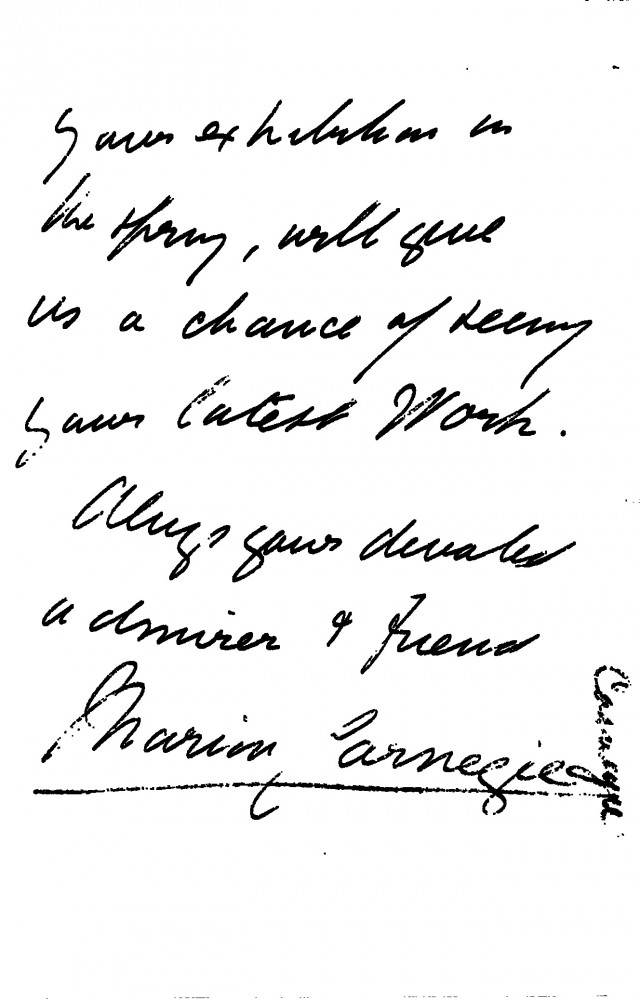 your exhibition in
the spring, will give
us a chance of seeing
your latest Work.
Always yours devoted
admirer & friend
Marion Carnegie
Carnegie